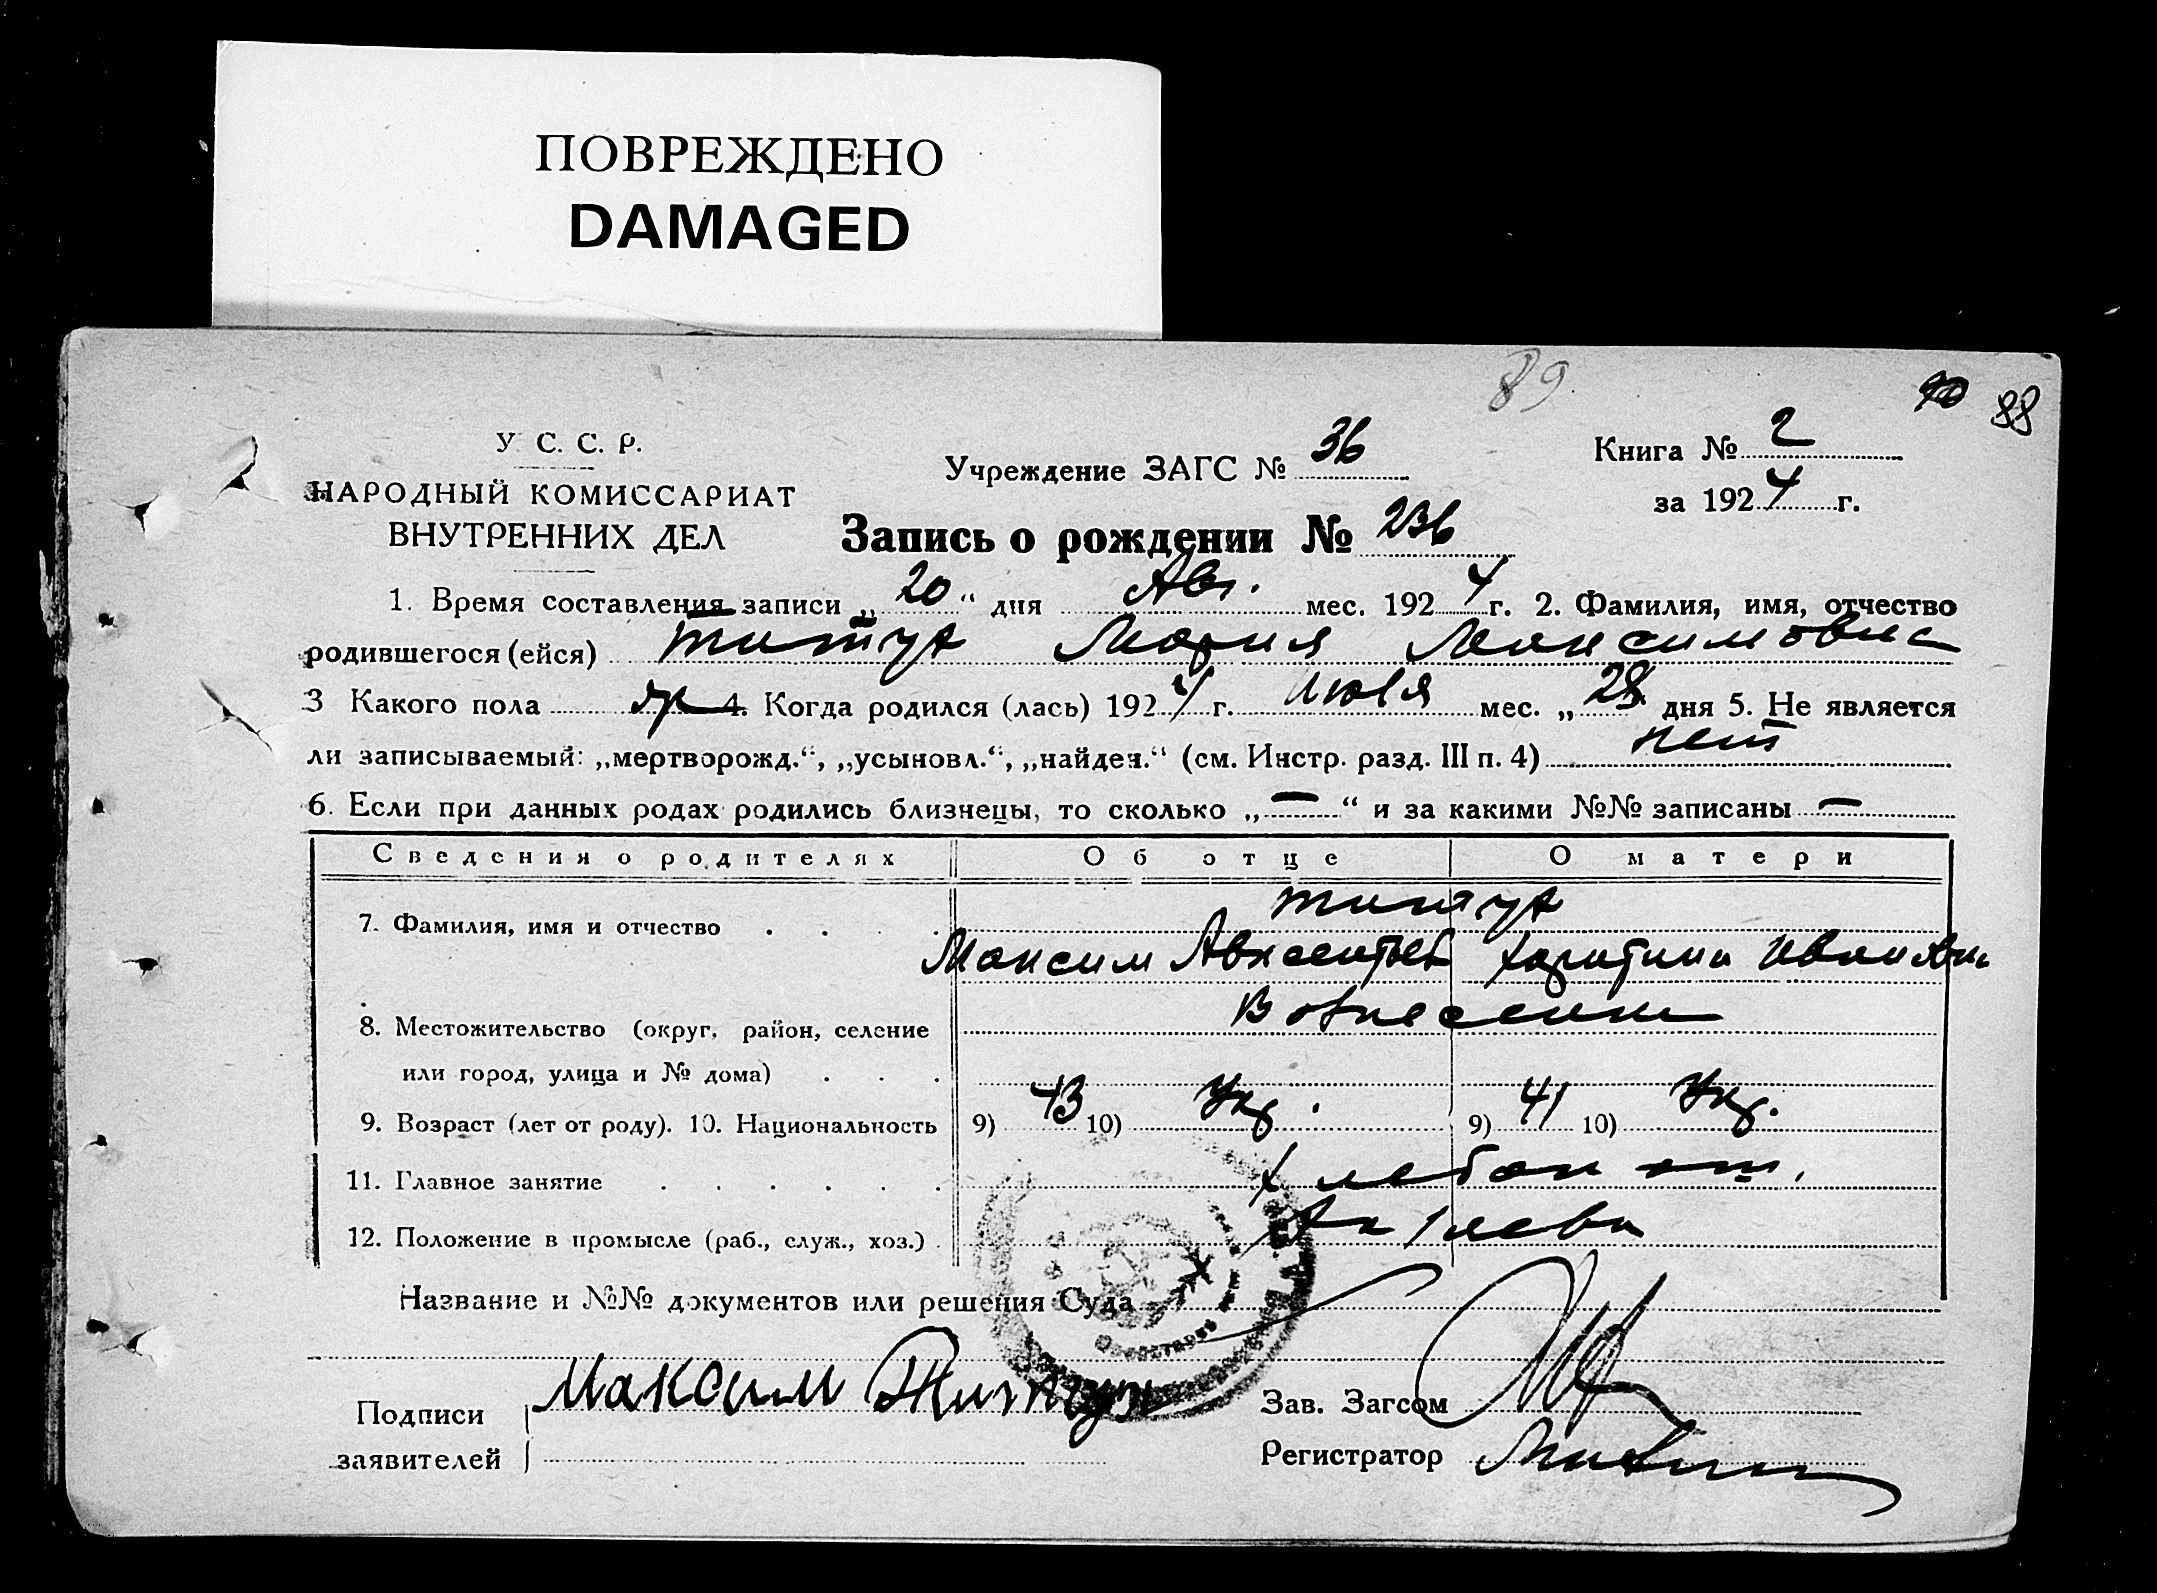 ПОВРЕЖДЕНО
DAMAGED
89
90 88
У С. С. Р.
НАРОДНЫЙ КОМИССАРИАТ
ВНУТРЕННИХ ДЕЛ
Учреждение ЗАГС № 36
Книга № 2
за 1924 г.
Запись о рождении № 236
1. Время составления записи „20“ дня Авг. мес. 1924 г. 2. Фамилия, имя, отчество
родившегося (ейся) Титух Мария Максимовна
3 Какого пола 4. Когда родился (лась) 1924 г. июля мес. „28 дня 5. Не является
ли записываемый: „мертворожд.“, „усыновл.“, „найден.“ (см. Инстр. разд. III п. 4) нет
6. Если при данных родах родились близнецы, то сколько „—“ и за какими №№ записаны —
Сведения о родителях Об отце О матери
7. Фамилия, имя и отчество Титух
Максим Авксентьев Харитина Иванов
8. Местожительство (округ, район, селение
или город, улица и № дома)
9. Возраст (лет от роду). 10. Национальность 9) 43 10) Укр. 9) 41 10) Укр.
11. Главное занятие хлебопаш.
12. Положение в промысле (раб., служ., хоз.)
Название и №№ документов или решения Суда
Подписи
заявителей
Максим Титух
Зав. Загсом
Регистратор